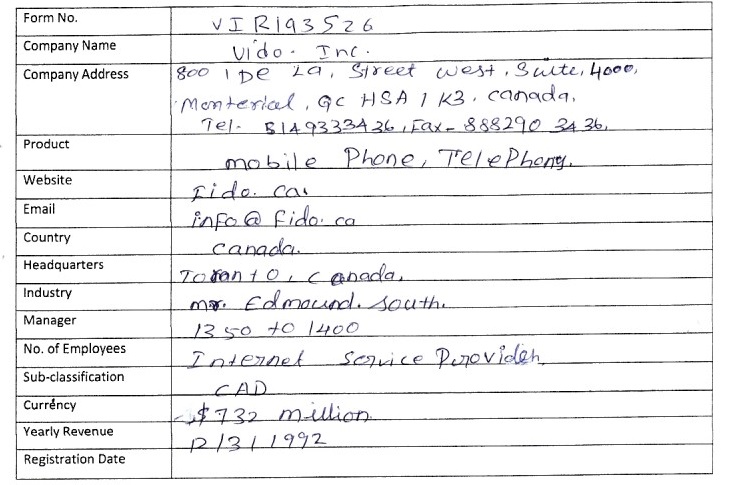 Form No. VIR193526
Company Name Vido. Inc.
Company Address 800 1 De La, Street west, Suite, 4000,
Monterical, QC HSA 1 K3, canada,
Tel- 5149333436, Fax- 888290 3436,
Product mobile Phone, TelePhony.
Website Fido. ca.
Email info@fido.ca
Country canada.
Headquarters Toranto, canada,
Industry mr. Edmound. south.
Manager 1350 to 1400
No. of Employees Internet Service Provider
Sub-classification CAD
Currency $732 million
Yearly Revenue 12/31 1992
Registration Date